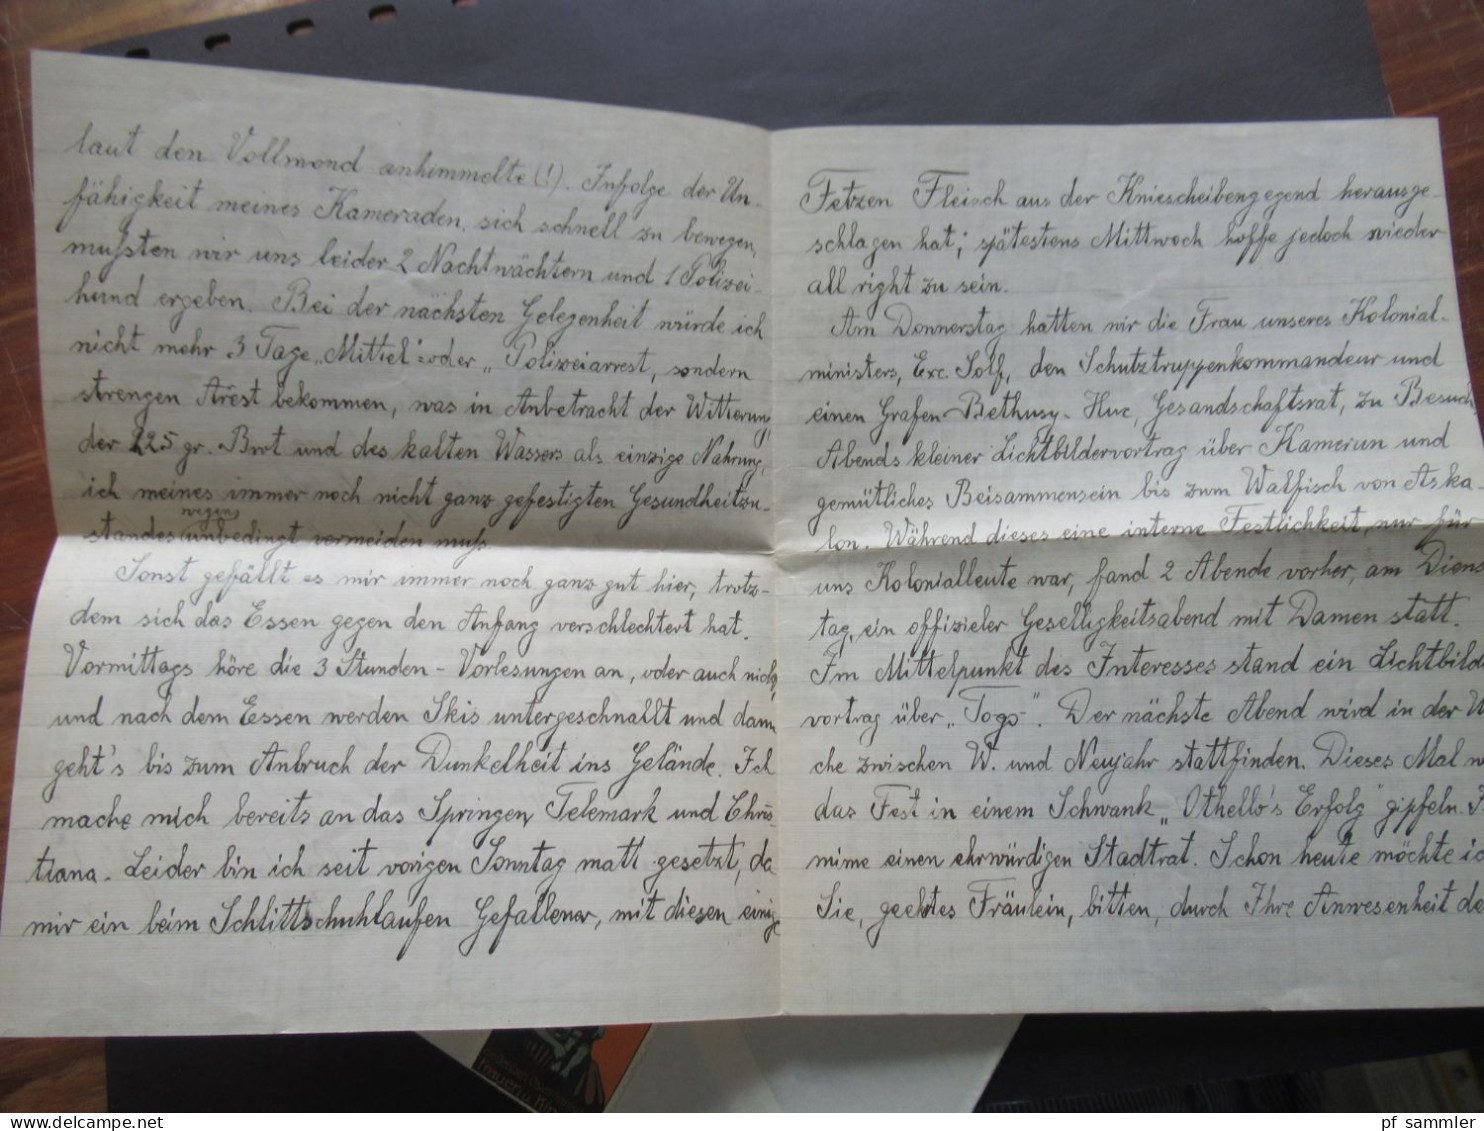 laut den Vollmond anhimmelte (!). Infolge der Un-
fähigkeit meines Kameraden, sich schnell zu bewegen,
mußten wir uns leider 2 Nachtwächtern und 1 Polizei-
hund ergeben. Bei der nächsten Gelegenheit würde ich
nicht mehr 3 Tage „Mittel" oder „Polizeiarrest, sondern
strengen Arrest bekommen, was in Anbetracht der Witterung,
der 225 gr. Brot und des kalten Wassers als einzige Nahrung,
ich meines immer noch nicht ganz gefestigten Gesundheitzu-
standes wegen unbedingt vermeiden muß.
Sonst gefällt es mir immer noch ganz gut hier, trotz-
dem sich das Essen gegen den Anfang verschlechtert hat.
Vormittags höre die 3 Stunden-Vorlesungen an, oder auch nicht,
und nach dem Essen werden Skis untergeschnallt und dann
geht's bis zum Anbruch der Dunkelheit ins Gelände. Ich
mache mich bereits an das Springen, Telemark und Chris-
tiana. Leider bin ich seit vorigen Sonntag matt gesetzt, da
mir ein beim Schlittschuhlaufen Gefallener, mit diesen einige
Fetzen Fleisch aus der Kniescheibengegend herausge-
schlagen hat; spätestens Mittwoch hoffe jedoch wieder
all right zu sein.
Am Donnerstag hatten wir die Frau unseres Kolonial-
ministers, Exc. Solf, den Schutztruppenkommandeur und
einen Grafen Bethusy-Huc, Gesandschaftsrat, zu Besuch.
Abends kleiner Lichtbildervortrag über Kamerun und
gemütliches Beisammensein bis zum Walfisch von Aska-
lon. Während dieses eine interne Festlichkeit, nur für
uns Kolonialleute war, fand 2 Abende vorher, am Diens
tag, ein offizieler Geselligkeitsabend mit Damen statt.
Im Mittelpunkt des Interesses stand ein Lichtbild
vortrag über „Togo". Der nächste Abend wird in der W
che zwischen W. und Neujahr stattfinden. Dieses Mal w
das Fest in einem Schwank „Othello's Erfolg" gipfeln.
mime einen ehrwürdigen Stadtrat. Schon heute möchte ic
Sie, geehrtes Fräulein, bitten, durch Ihre Anwesenheit de
Frauen in
pf sammler
© delcampe.net